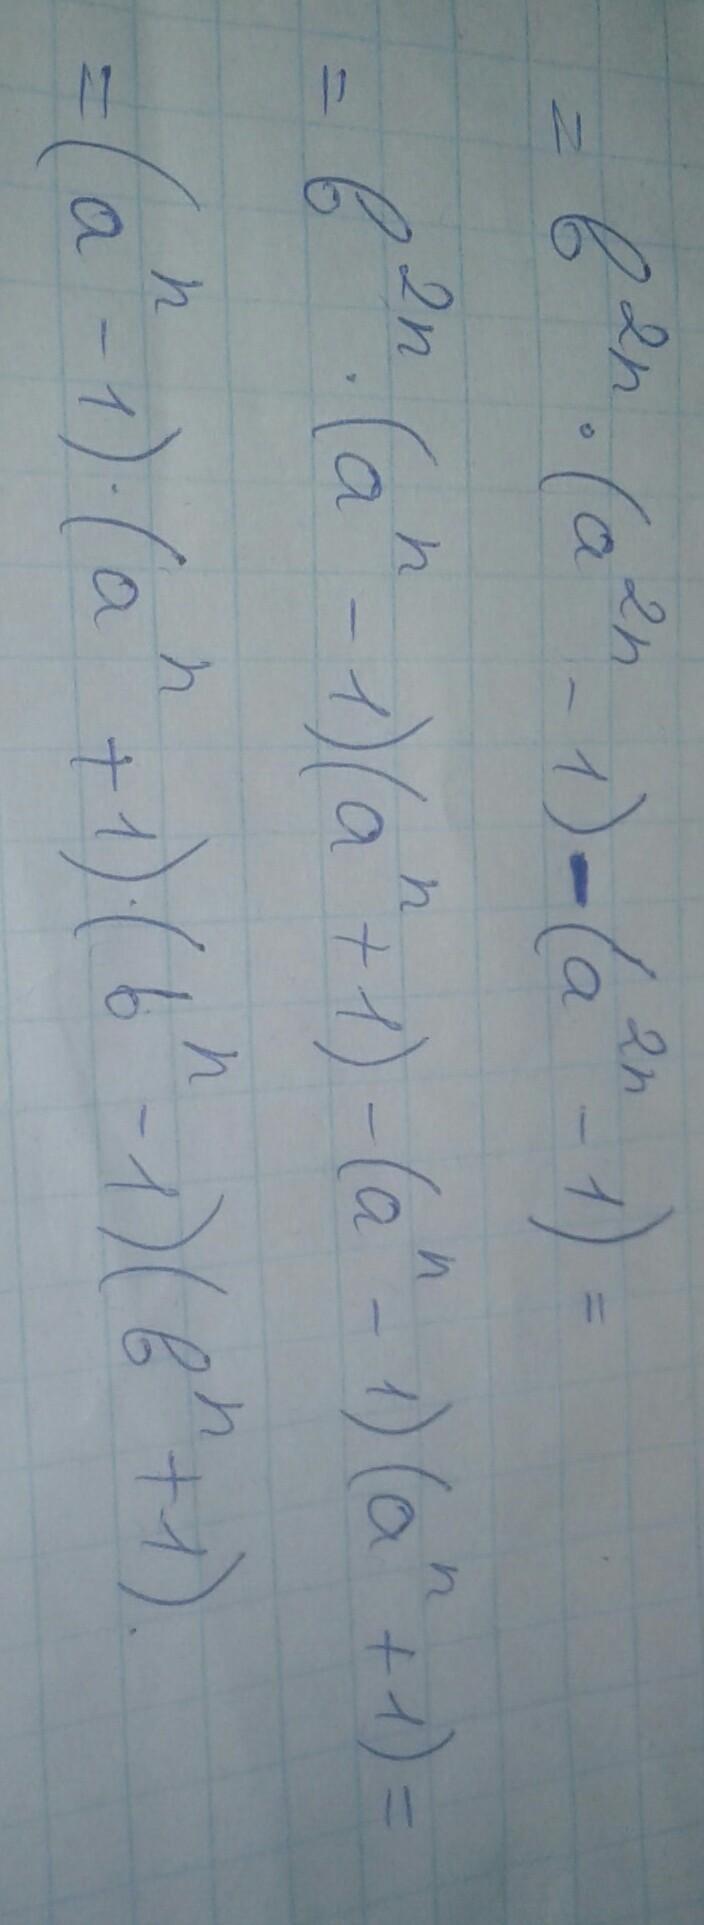 = b^{2n} · (a^{2n} - 1) - (a^{2n} - 1) =
= b^{2n} · (a^n - 1)(a^n + 1) - (a^n - 1)(a^n + 1) =
= (a^n - 1) · (a^n + 1) · (b^n - 1)(b^n + 1).